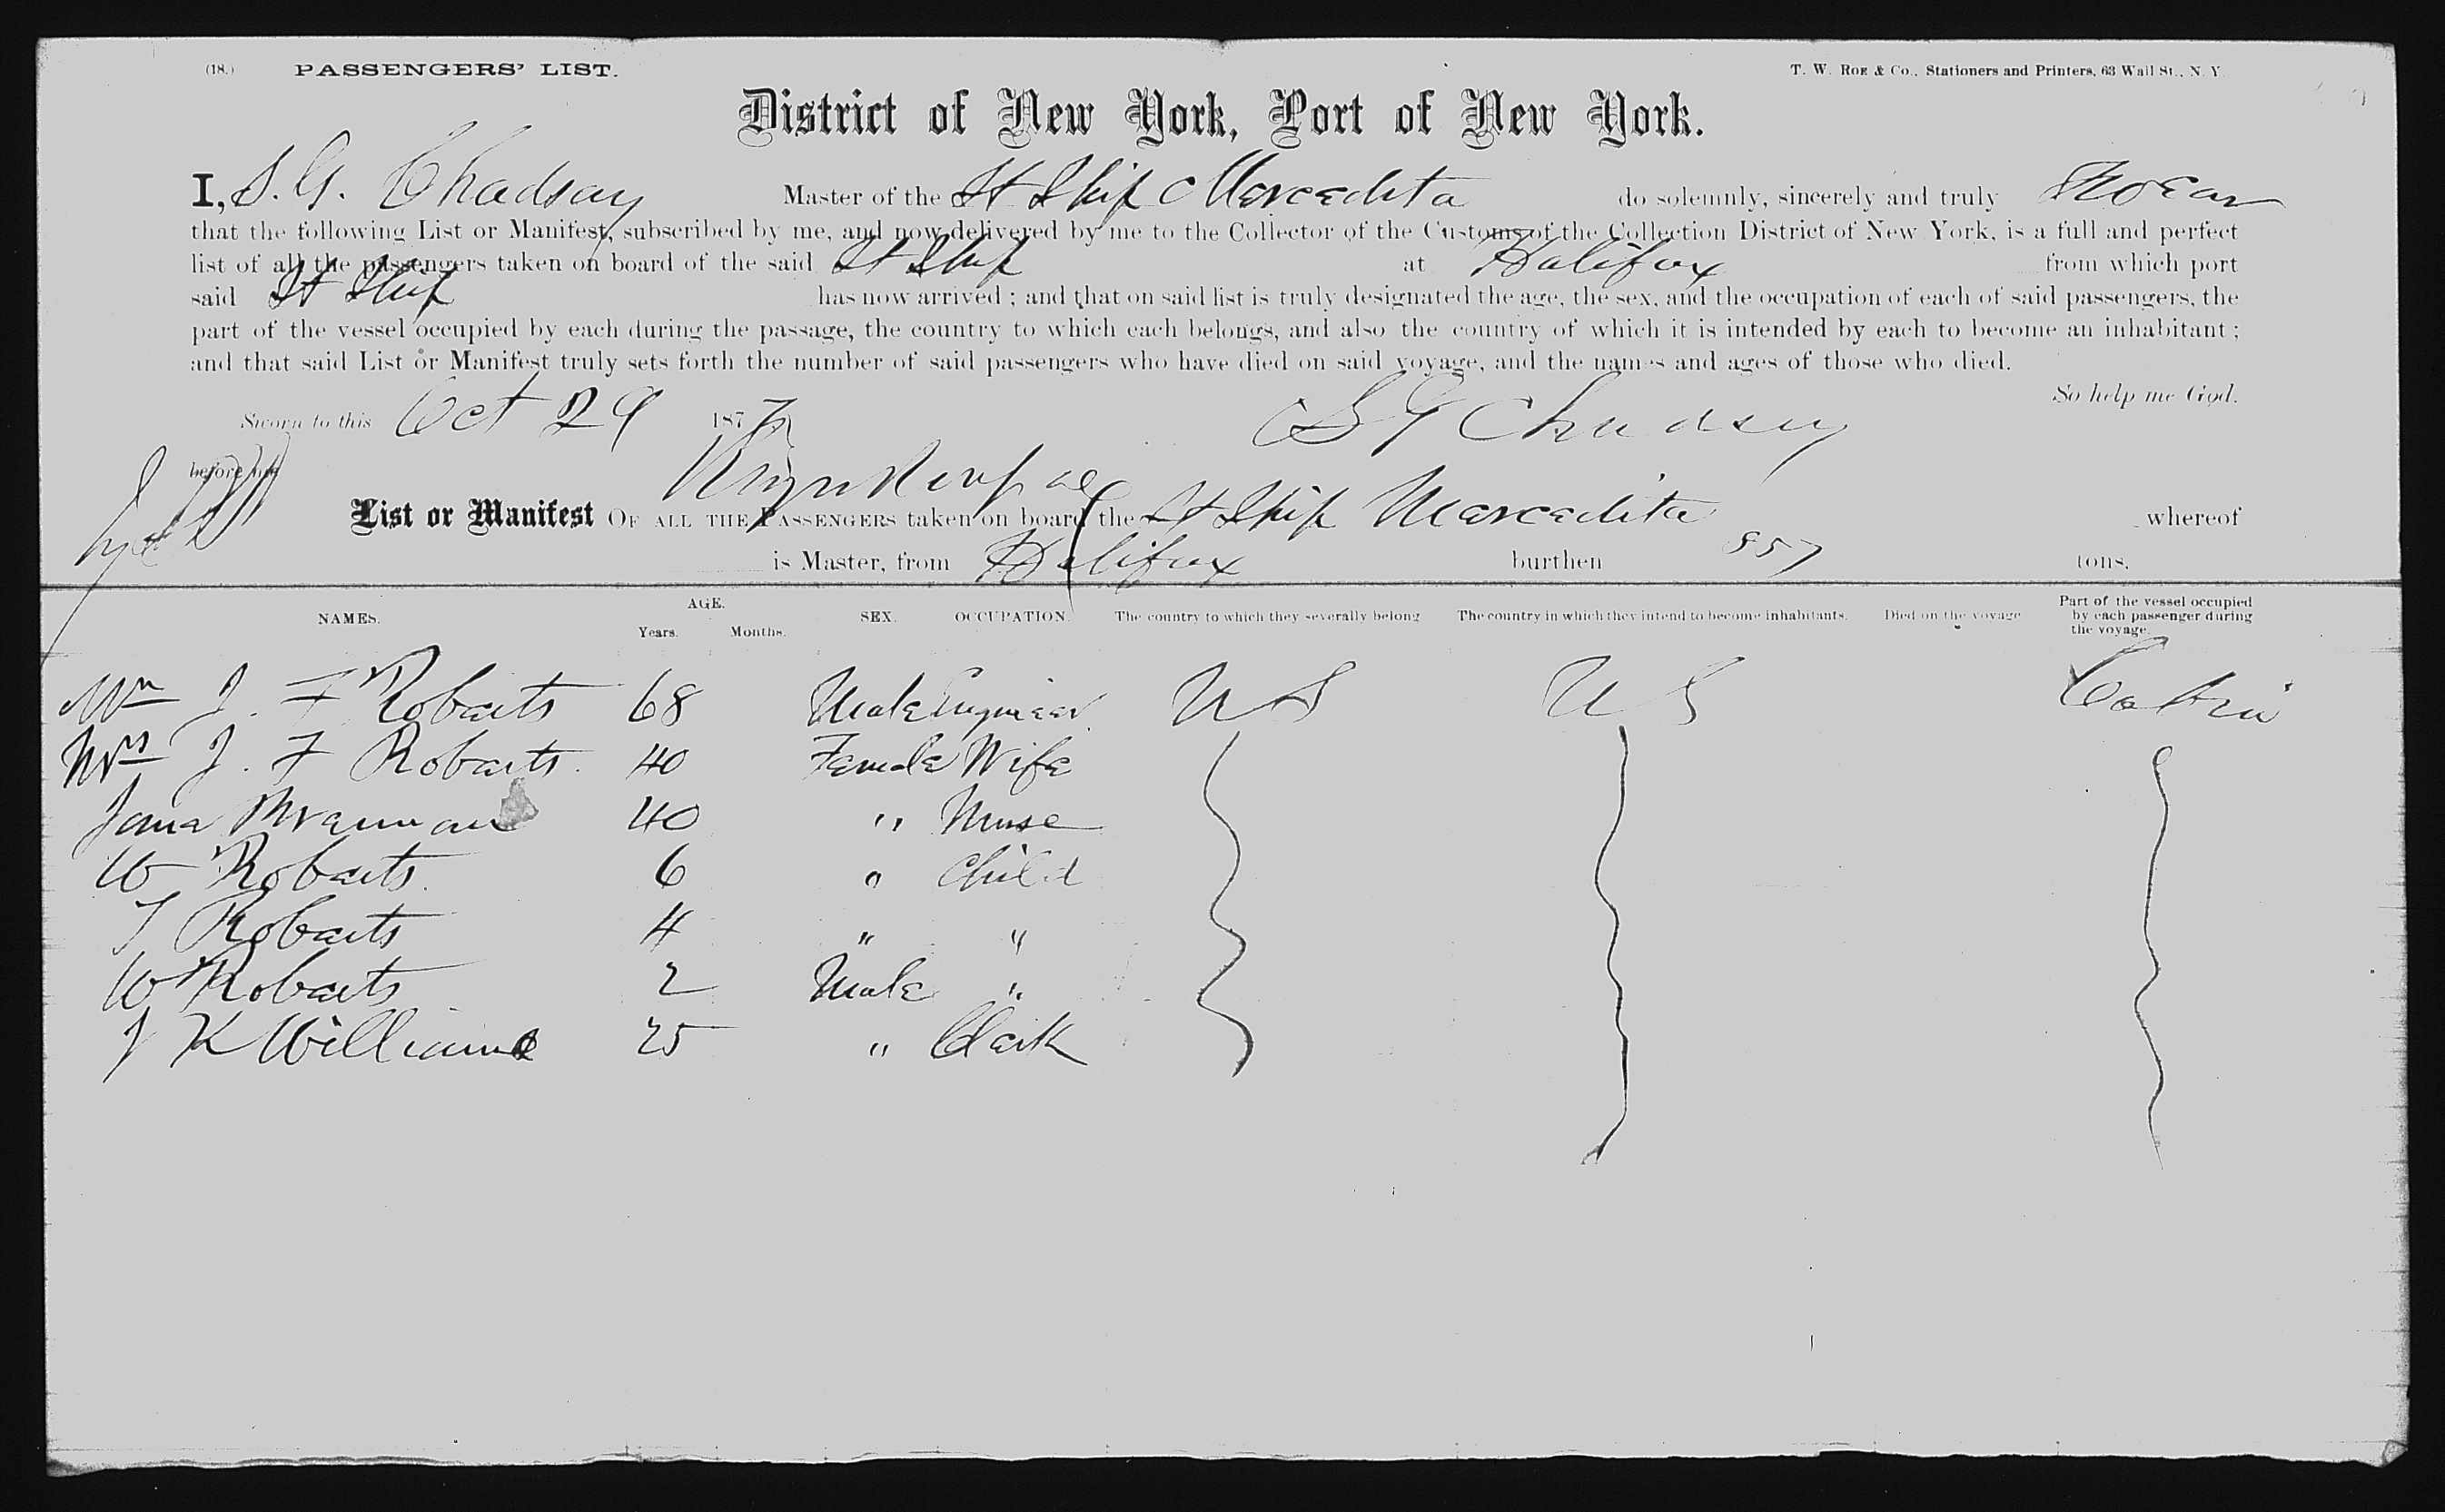 (18.) PASSENGERS' LIST. T. W. ROE & Co., Stationers and Printers, 63 Wall St., N. Y.
District of New York, Port of New York.
I, S. G. Chadsay Master of the St Ship Marcedita do solemnly, sincerely and truly Swear
that the following List or Manifest, subscribed by me, and now delivered by me to the Collector of the Customs of the Collection District of New York, is a full and perfect
list of all the passengers taken on board of the said St Ship at Halifax from which port
said St Ship has now arrived ; and that on said list is truly designated the age, the sex, and the occupation of each of said passengers, the
part of the vessel occupied by each during the passage, the country to which each belongs, and also the country of which it is intended by each to become an inhabitant ;
and that said List or Manifest truly sets forth the number of said passengers who have died on said voyage, and the names and ages of those who died.
So help me God.
Sworn to this Oct 29 187 S G Chadsey
before me
List or Manifest OF ALL THE PASSENGERS taken on board the St Ship Marcadita whereof
is Master, from Halifax burthen 857 tons.
NAMES. AGE. Years. Months. SEX. OCCUPATION. The country to which they severally belong The country in which they intend to become inhabitants. Died on the voyage Part of the vessel occupied by each passenger during the voyage.
J. F Robarts 68 Male Engineer U S U S Cabin
Mrs J. F Robarts. 40 Female Wife
Jana Brannan 40 " Nurse
W Robarts. 6 " Child
T Robarts 4 " "
W Robarts 2 Male "
J K Williams 25 " Clark